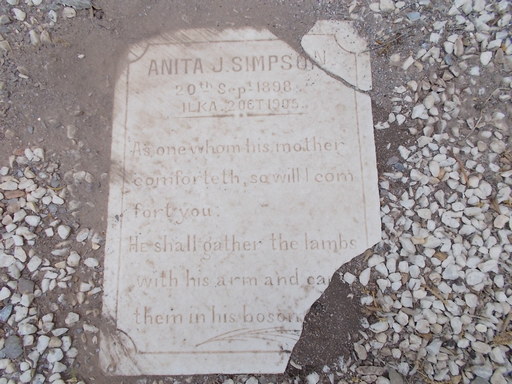 ANITA J. SIMPSON
20th Sept 1898
ILKA. 2 OCT 1905.
As one whom his mother
comforteth, so will I com
fort you.
He shall gather the lambs
with his arm and ca
them in his bosom